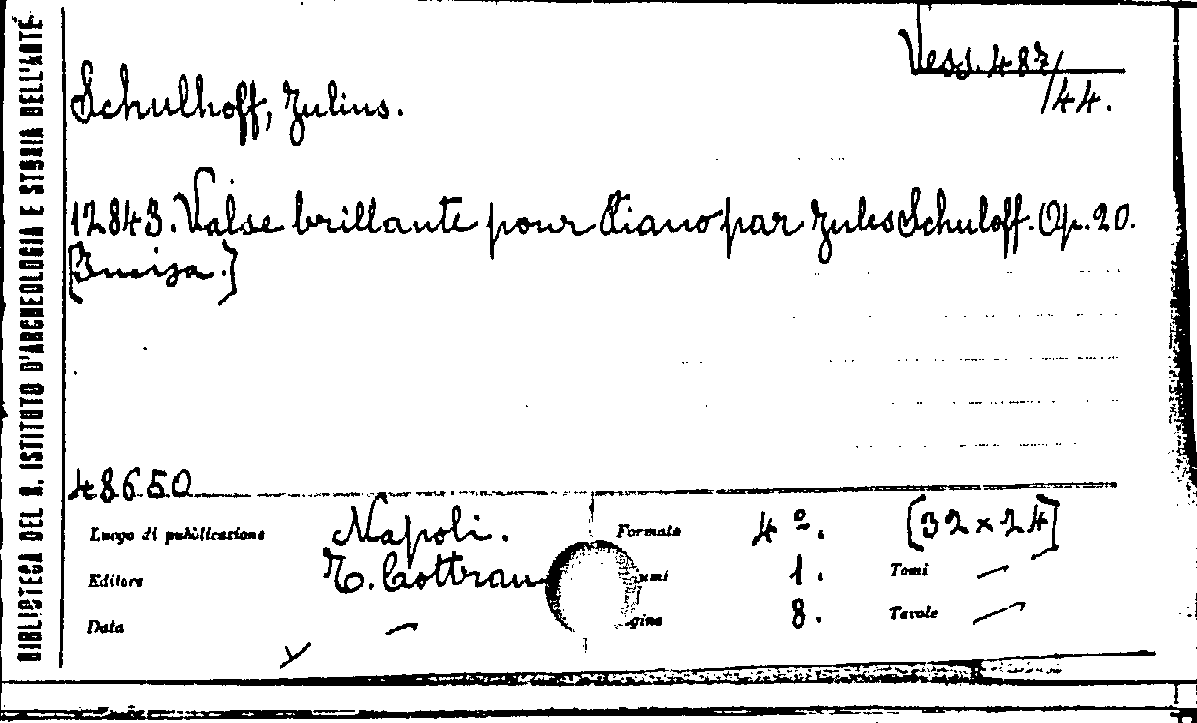 BIBLIOTECA DEL R. ISTITUTO D'ARCHEOLOGIA E STORIA DELL'ARTE
Vess. 487/44.
Schulhoff, Julius.
12.843. Valse brillante pour Piano par Jules Schuloff. Op. 20.
[Incisa.]
48650
Luogo di pubblicazione Napoli. Formato 4º. [32 x 24]
Editore T. Cottrau umi 1. Tomi —
Data — gine 8. Tavole —